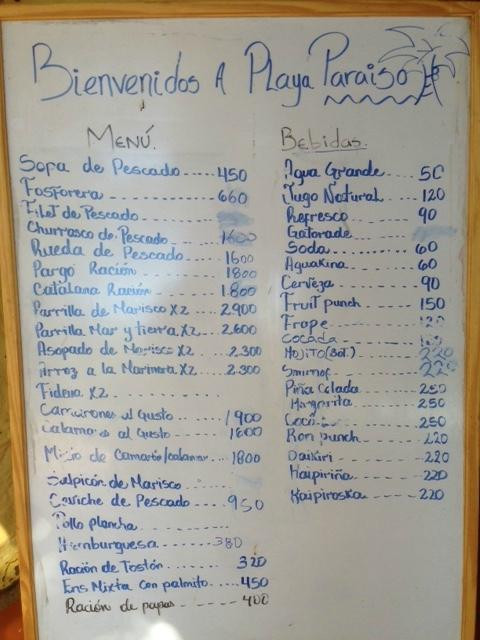 Bienvenidos A Playa Paraiso
MENÚ.
Sopa de Pescado.....450
Fosforera ........ 660
Filet de Pescado
Churrasco de Pescado..... 1600
Rueda de Pescado..... 1600
Pargo Ración........ 1800
Catalana Ración...... 1.800
Parrilla de Marisco X2 ... 2.900
Parrilla Mar y tierra X2... 2.600
Asopado de Marisco X2 ... 2.300
Arroz a la Marinera X2... 2.300
Fideua X2
Camarones al Gusto ..... 1900
Calamares al Gusto ..... 1600
Mixto de Camarón/calamar... 1800
Salpicón de Marisco
Ceviche de Pescado ..... 950
Pollo Plancha
Hamburguesa ...... 380
Ración de Tostón..... 320
Ens Mixta con palmito.... 450
Ración de papas ------- 400
Bebidas.
Agua Grande.... 50
Jugo Natural.... 120
Refresco ...... 90
Gatorade
Soda ........ 60
Aguakina ...... 60
Cerveja ...... 90
Fruit punch ... 150
Frape
Cocada
Mojito
Smirnof
Piña Colada ... 250
Margarita .... 250
250
Ron punch .... 220
Daikiri ...... 220
Kaipiriña .... 220
Kaipiroska .... 220